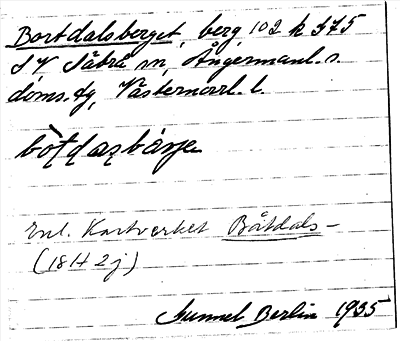 Bortdalsberget, berg 102 k 375
SV Säbrå sn, Ångermanl. s.
doms. fg, Västernorrl. l.
Enl. Kartverket Båtdals-
(18H2j)
Gunnel Berlin 1935